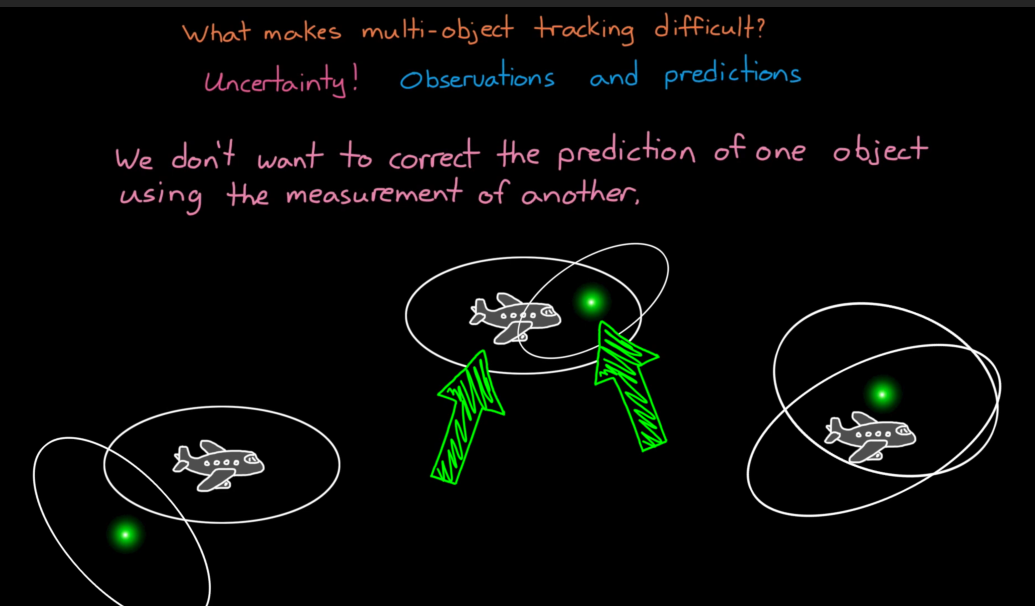 What makes multi-object tracking difficult?
Uncertainty! Observations and predictions
We don't want to correct the prediction of one object
using the measurement of another.